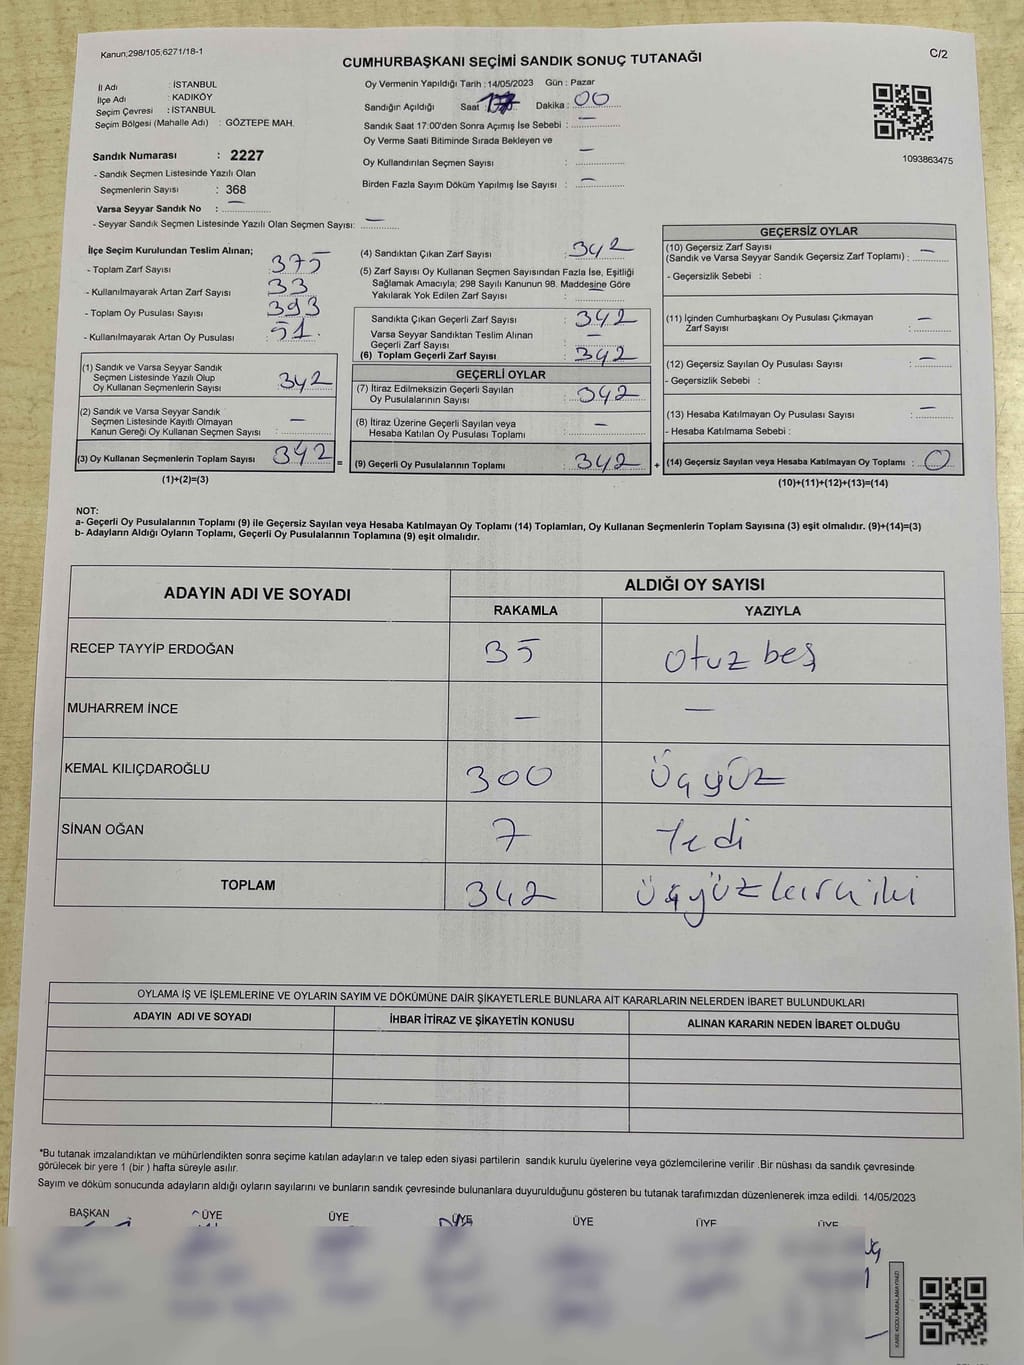 Kanun;298/105,6271/18-1
C/2
CUMHURBAŞKANI SEÇİMİ SANDIK SONUÇ TUTANAĞI
İl Adı : İSTANBUL
İlçe Adı : KADIKÖY
Seçim Çevresi : İSTANBUL
Seçim Bölgesi (Mahalle Adı) : GÖZTEPE MAH.
Sandık Numarası : 2227
- Sandık Seçmen Listesinde Yazılı Olan
Seçmenlerin Sayısı : 368
Varsa Seyyar Sandık No : —
- Seyyar Sandık Seçmen Listesinde Yazılı Olan Seçmen Sayısı: —
Oy Vermenin Yapıldığı Tarih : 14/05/2023 Gün : Pazar
Sandığın Açıldığı Saat 17 Dakika : 00
Sandık Saat 17:00'den Sonra Açımış İse Sebebi : —
Oy Verme Saati Bitiminde Sırada Bekleyen ve
Oy Kullandırılan Seçmen Sayısı : —
Birden Fazla Sayım Döküm Yapılmış İse Sayısı : —
1093863475
İlçe Seçim Kurulundan Teslim Alınan;
- Toplam Zarf Sayısı 375
- Kullanılmayarak Artan Zarf Sayısı 33
- Toplam Oy Pusulası Sayısı 393
- Kullanılmayarak Artan Oy Pusulası 51.
(1) Sandık ve Varsa Seyyar Sandık
Seçmen Listesinde Yazılı Olup
Oy Kullanan Seçmenlerin Sayısı 342
(2) Sandık ve Varsa Seyyar Sandık
Seçmen Listesinde Kayıtlı Olmayan
Kanun Gereği Oy Kullanan Seçmen Sayısı : —
(3) Oy Kullanan Seçmenlerin Toplam Sayısı 342 =
(1)+(2)=(3)
(4) Sandıktan Çıkan Zarf Sayısı : 342
(5) Zarf Sayısı Oy Kullanan Seçmen Sayısından Fazla İse, Eşitliği
Sağlamak Amacıyla; 298 Sayılı Kanunun 98. Maddesine Göre
Yakılarak Yok Edilen Zarf Sayısı : —
Sandıkta Çıkan Geçerli Zarf Sayısı : 342
Varsa Seyyar Sandıktan Teslim Alınan
Geçerli Zarf Sayısı : —
(6) Toplam Geçerli Zarf Sayısı : 342
GEÇERLİ OYLAR
(7) İtiraz Edilmeksizin Geçerli Sayılan
Oy Pusulalarının Sayısı : 342
(8) İtiraz Üzerine Geçerli Sayılan veya
Hesaba Katılan Oy Pusulası Toplamı : —
(9) Geçerli Oy Pusulalarının Toplamı : 342 +
GEÇERSİZ OYLAR
(10) Geçersiz Zarf Sayısı
(Sandık ve Varsa Seyyar Sandık Geçersiz Zarf Toplamı) : —
- Geçersizlik Sebebi :
(11) İçinden Cumhurbaşkanı Oy Pusulası Çıkmayan
Zarf Sayısı : —
(12) Geçersiz Sayılan Oy Pusulası Sayısı : —
- Geçersizlik Sebebi :
(13) Hesaba Katılmayan Oy Pusulası Sayısı : —
- Hesaba Katılmama Sebebi :
(14) Geçersiz Sayılan veya Hesaba Katılmayan Oy Toplamı : 0
(10)+(11)+(12)+(13)=(14)
NOT:
a- Geçerli Oy Pusulalarının Toplamı (9) ile Geçersiz Sayılan veya Hesaba Katılmayan Oy Toplamı (14) Toplamları, Oy Kullanan Seçmenlerin Toplam Sayısına (3) eşit olmalıdır. (9)+(14)=(3)
b- Adayların Aldığı Oyların Toplamı, Geçerli Oy Pusulalarının Toplamına (9) eşit olmalıdır.
ADAYIN ADI VE SOYADI ALDIĞI OY SAYISI
RAKAMLA YAZIYLA
RECEP TAYYİP ERDOĞAN 35 Otuz beş
MUHARREM İNCE — —
KEMAL KILIÇDAROĞLU 300 Üçyüz
SİNAN OĞAN 7 Yedi
TOPLAM 342 Üçyüzkırkiki
OYLAMA İŞ VE İŞLEMLERİNE VE OYLARIN SAYIM VE DÖKÜMÜNE DAİR ŞİKAYETLERLE BUNLARA AİT KARARLARIN NELERDEN İBARET BULUNDUKLARI
ADAYIN ADI VE SOYADI İHBAR İTİRAZ VE ŞİKAYETİN KONUSU ALINAN KARARIN NEDEN İBARET OLDUĞU
*Bu tutanak imzalandıktan ve mühürlendikten sonra seçime katılan adayların ve talep eden siyasi partilerin sandık kurulu üyelerine veya gözlemcilerine verilir .Bir nüshası da sandık çevresinde
görülecek bir yere 1 (bir ) hafta süreyle asılır.
Sayım ve döküm sonucunda adayların aldığı oyların sayılarını ve bunların sandık çevresinde bulunanlara duyurulduğunu gösteren bu tutanak tarafımızdan düzenlenerek imza edildi. 14/05/2023
BAŞKAN ÜYE ÜYE ÜYE ÜYE ÜYE ÜYE
KARE KODU KARALAMAYINIZ!